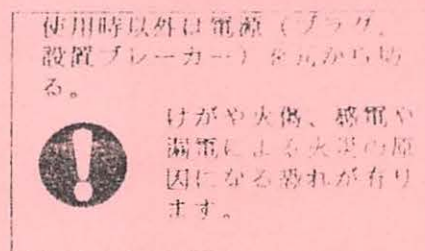 使用時以外は電源（プラグ、
設置ブレーカー）を元から切
る。
けがや火傷、感電や
漏電による火災の原
因になる恐れが有り
ます。